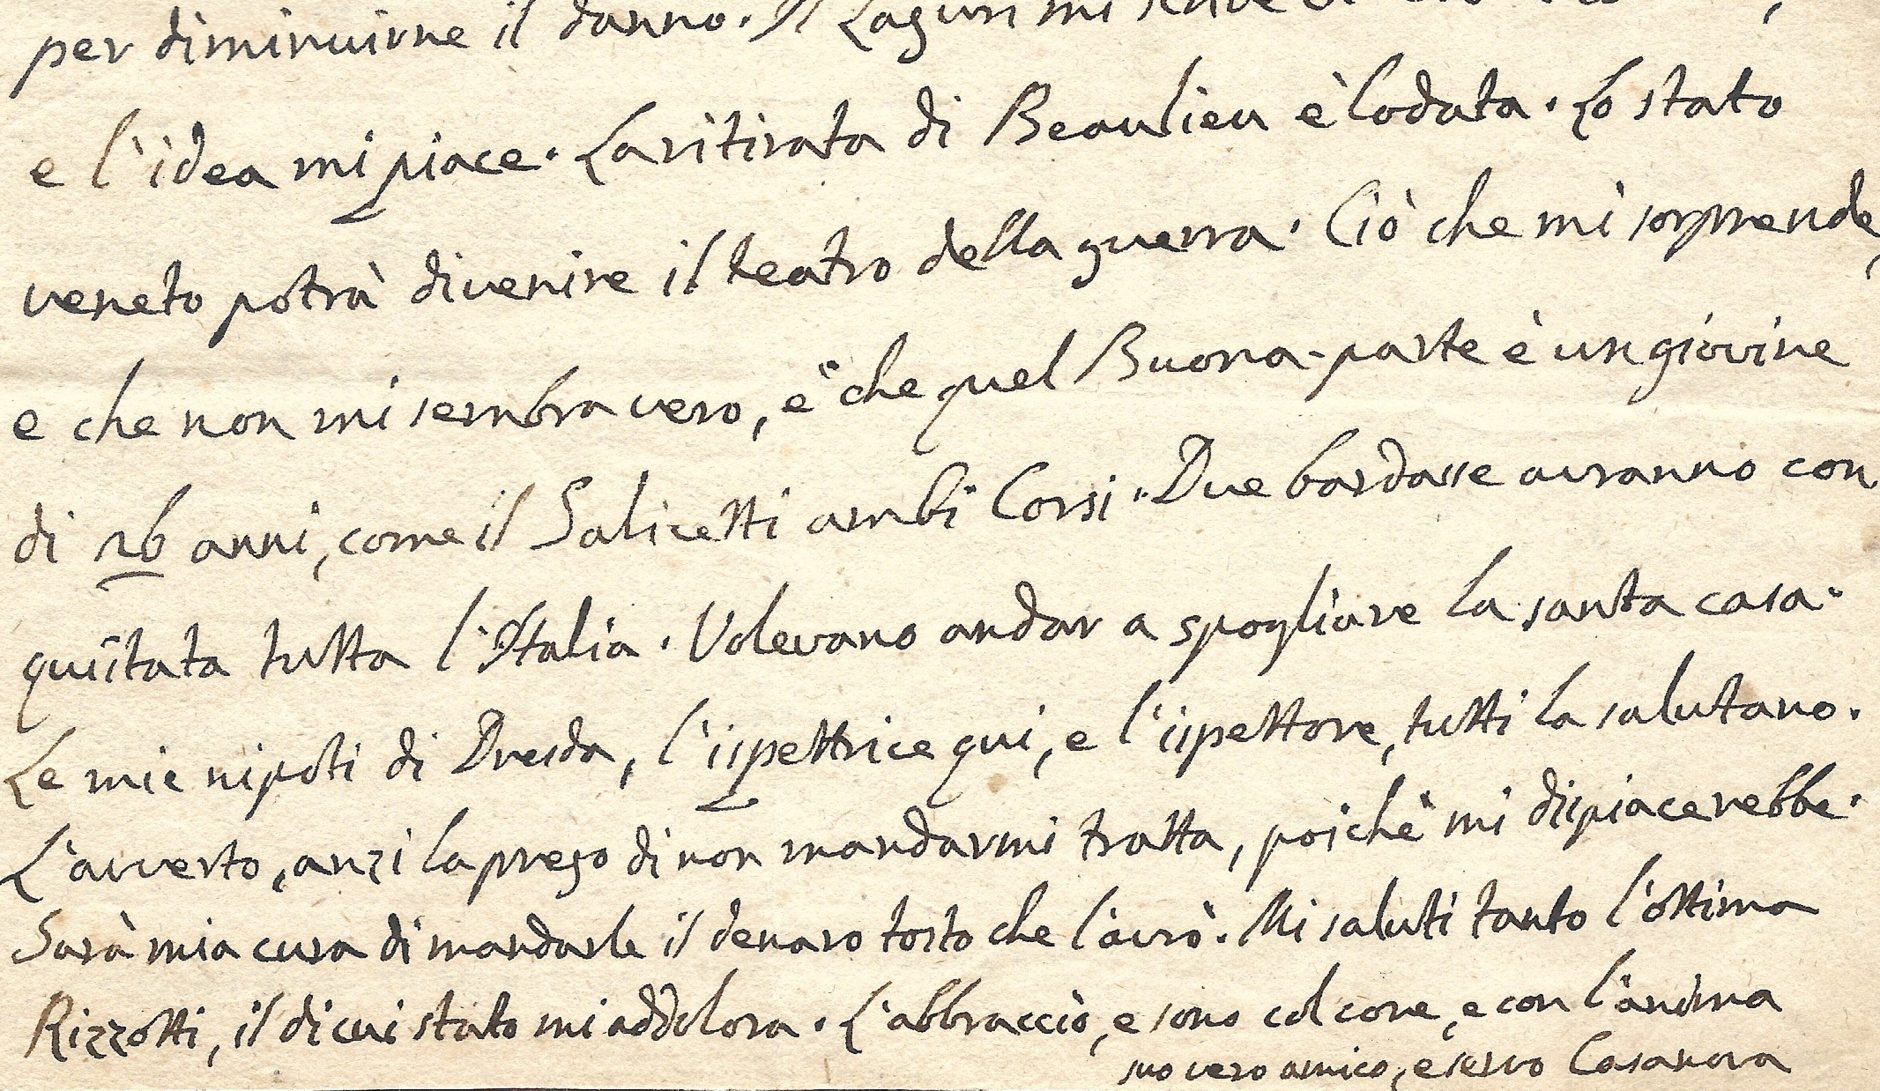 per diminuirne il danno. Il Zaguri mi scrive
e l'idea mi piace. La ritirata di Beaulieu è lodata. Lo stato
veneto potrà divenire il teatro della guerra. Ciò che mi sorprende,
e che non mi sembra vero, è che quel Buona-parte è un giovine
di 26 anni, come il Salicetti ambi Corsi. Due bardasse avranno con
quistata tutta l'Italia. Volevano andar a spogliare la santa casa.
Le mie nipoti di Dresda, l'ispettrice qui, e l'ispettore, tutti la salutano.
L'avverto, anzi la prego di non mandarmi tratta, poichè mi dispiacerebbe.
Sarà mia cura di mandarle il denaro tosto che l'avrò. Mi saluti tanto l'ottima
Rizzotti, il di cui stato mi addolora. L'abbraccio, e sono col core, e con l'anima
suo vero amico, e servo Casanova